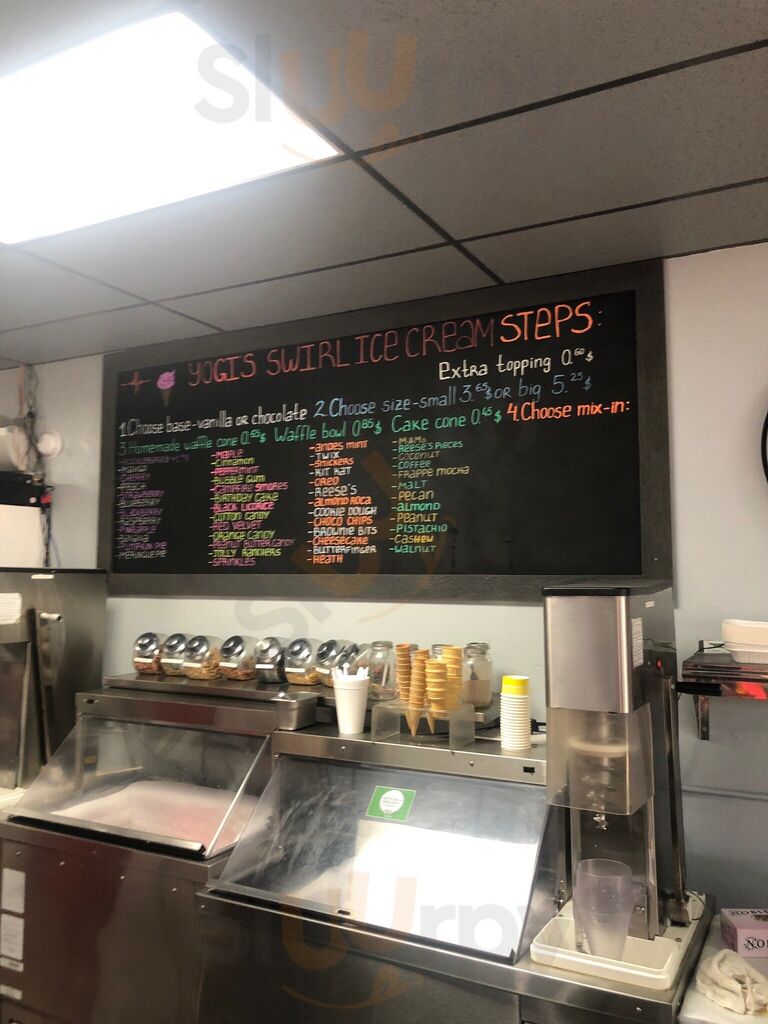 YOGIS SWIRL ICE CREAM STEPS:
Extra topping 0.60$
1. Choose base-vanilla or chocolate 2. Choose size-small 3.65$ or big 5.25$
3. Homemade waffle cone 0.85$ Waffle bowl 0.85$ Cake cone 0.45$ 4. Choose mix-in:
-MANGO
-CHERRY
-PEACH
-STRAWBERRY
-BLUEBERRY
-BLACKBERRY
-RASPBERRY
-PINEAPPLE
-BANANA
-PUMPKIN PIE
-MERINGUE PIE
-MAPLE
-CINNAMON
-PEPPERMINT
-BUBBLE GUM
-CAMPFIRE SMORES
-BIRTHDAY CAKE
-BLACK LICORICE
-COTTON CANDY
-RED VELVET
-ORANGE CANDY
-PEANUT BUTTER CANDY
-JOLLY RANCHERS
-SPRINKLES
-ANDES MINT
-TWIX
-SNICKERS
-KIT KAT
-OREO
-REESE'S
-ALMOND ROCA
-COOKIE DOUGH
-CHOCO CHIPS
-BROWNIE BITS
-CHEESECAKE
-BUTTERFINGER
-HEATH
-M&Ms
-REESE'S PIECES
-COCONUT
-COFFEE
-FRAPPE MOCHA
-MALT
-PECAN
-ALMOND
-PEANUT
-PISTACHIO
-CASHEW
-WALNUT
Sluurpy
Sluurpy
Sluurpy